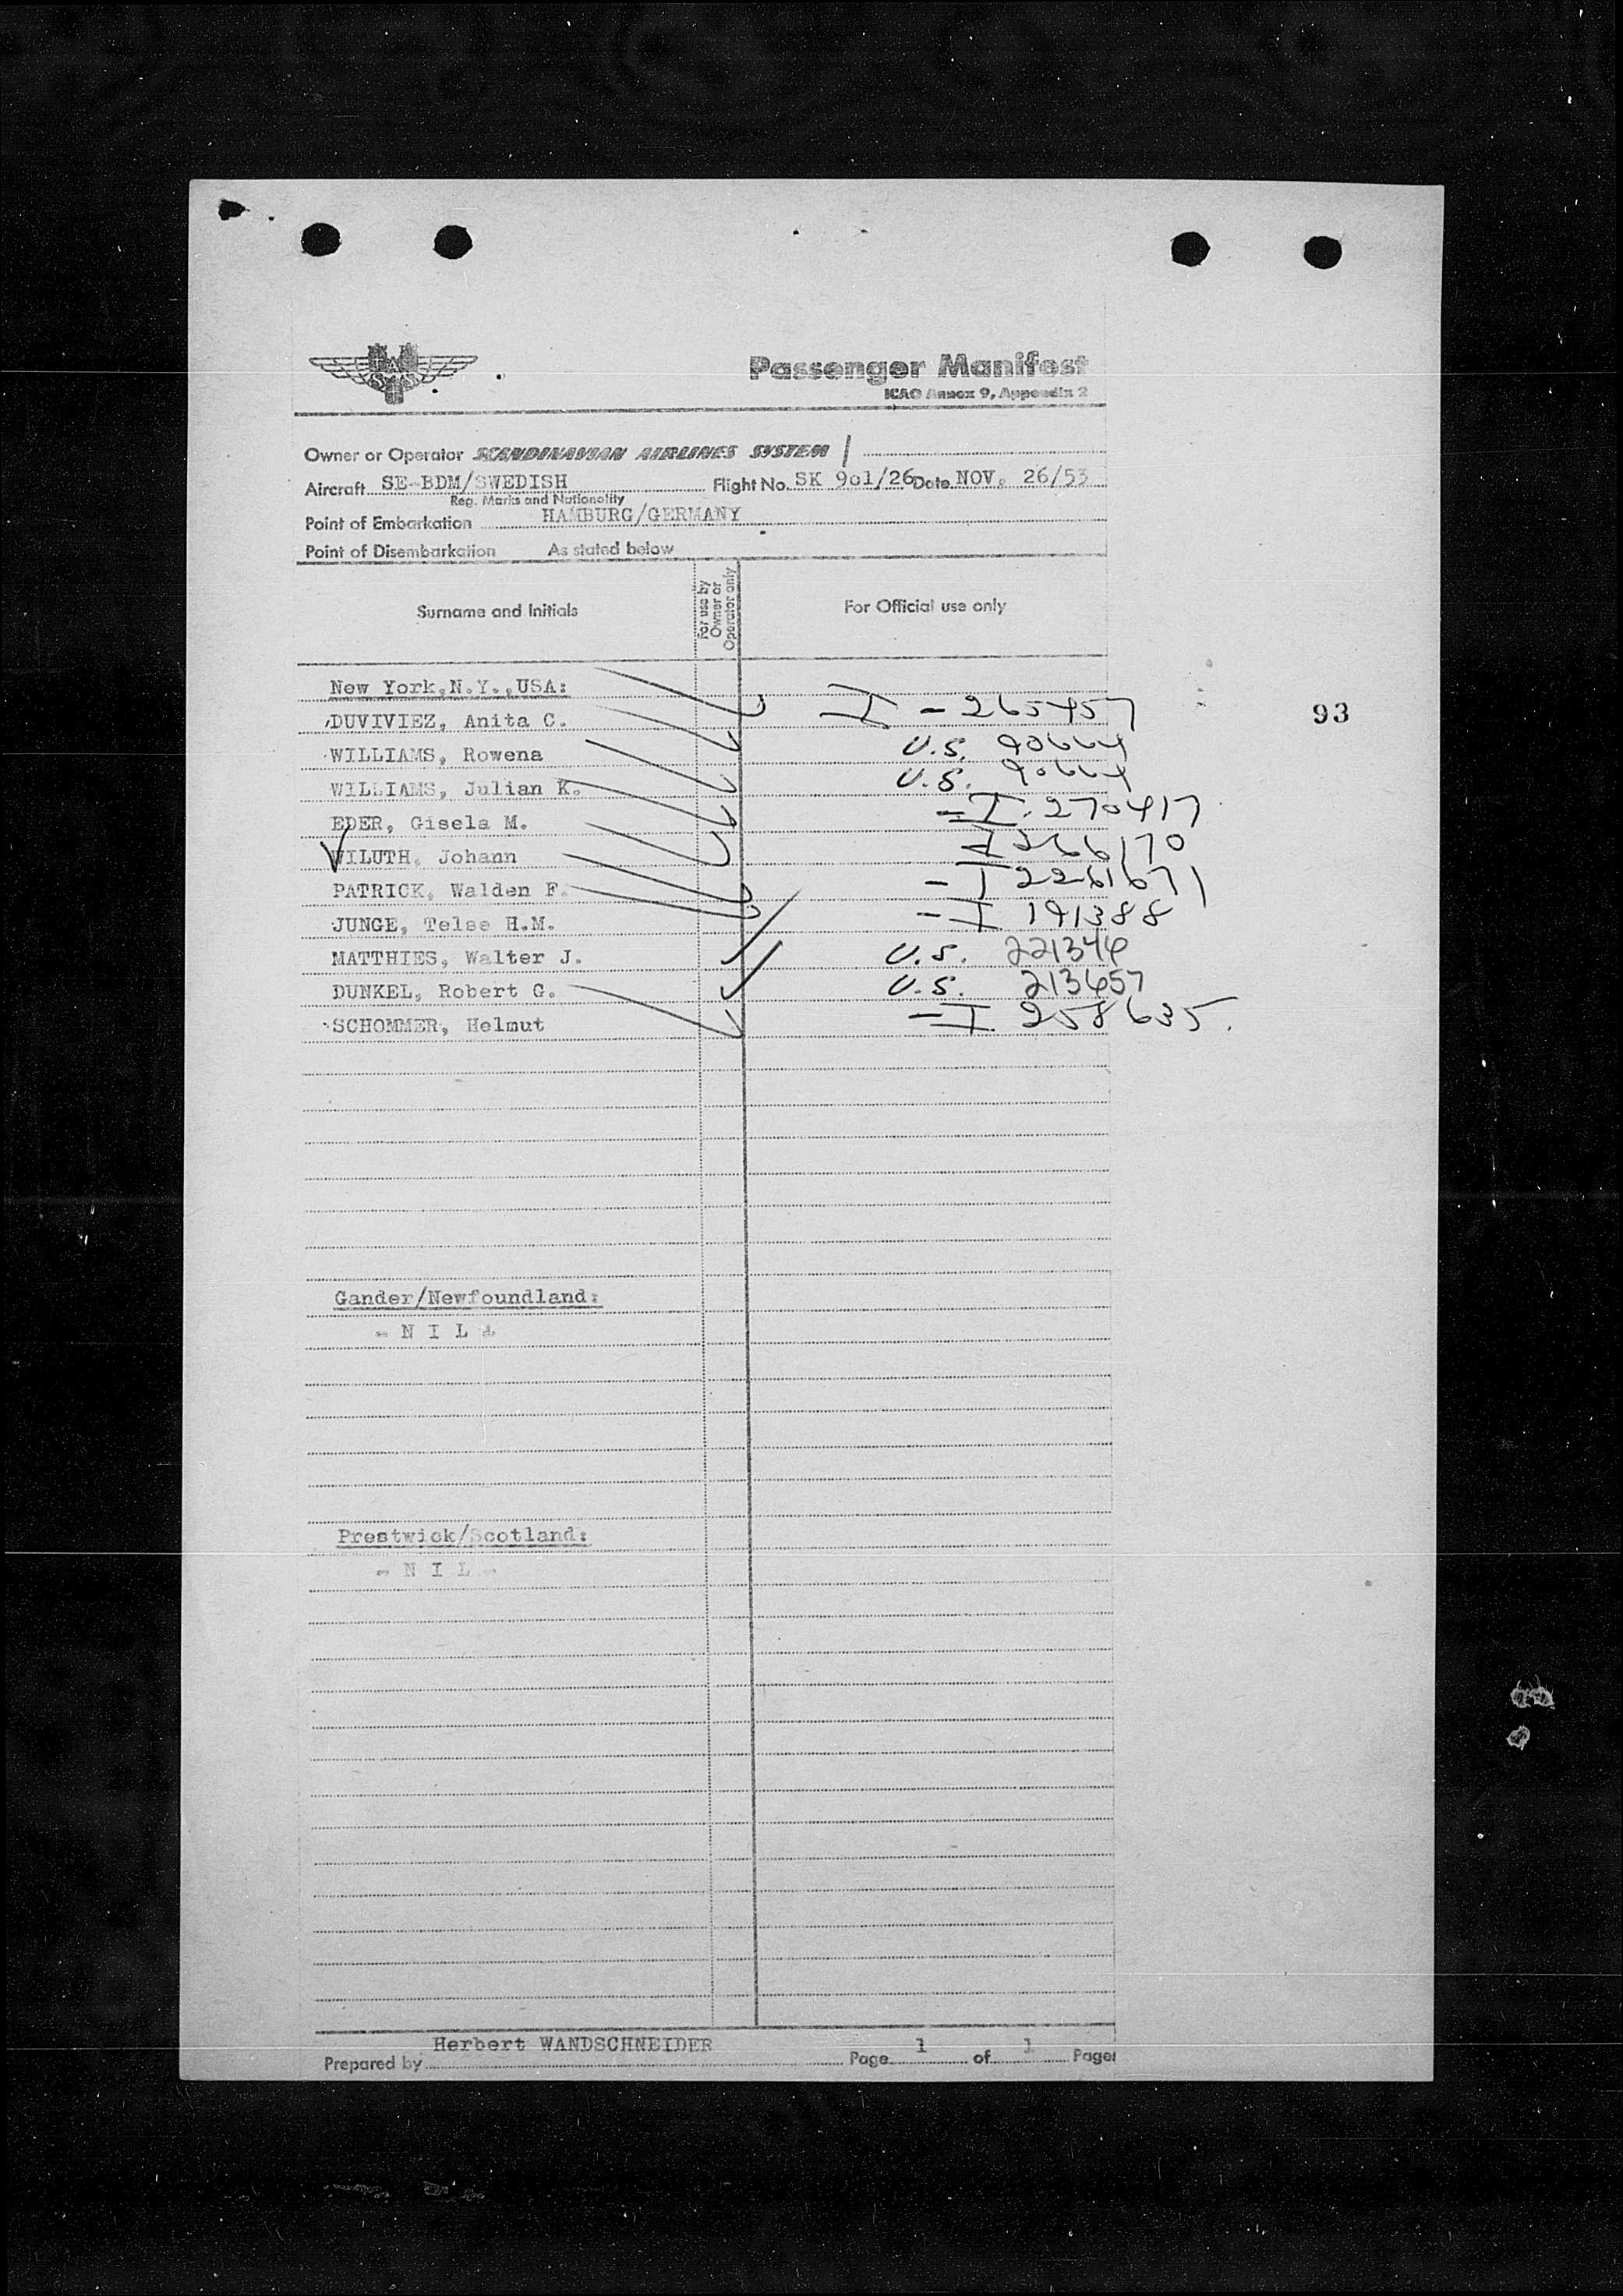 Passenger Manifest
ICAO Annex 9, Appendix 2
Owner or Operator SCANDINAVIAN AIRLINES SYSTEM
Aircraft SE-BDM/SWEDISH Flight No. SK 9o1/26 Date NOV. 26/53
Reg. Marks and Nationality
Point of Embarkation HAMBURG/GERMANY
Point of Disembarkation As stated below
Surname and Initials For use by Owner or Operator only For Official use only
New York,N.Y.,USA:
DUVIVIEZ, Anita C. I - 265457
93
WILLIAMS, Rowena U.S. 90664
WILLIAMS, Julian K. U.S. 90664
EDER, Gisela M. - I. 270417
WILUTH, Johann I 266170
PATRICK, Walden F. - I
JUNGE, Telse H.M. - I 191388
MATTHIES, Walter J. U.S. 221344
DUNKEL, Robert G. U.S. 213657
SCHOMMER, Helmut - I 258635.
Gander/Newfoundland:
- N I L -
Prestwick/Scotland:
- N I L -
Prepared by Herbert WANDSCHNEIDER Page 1 of 1 Pages